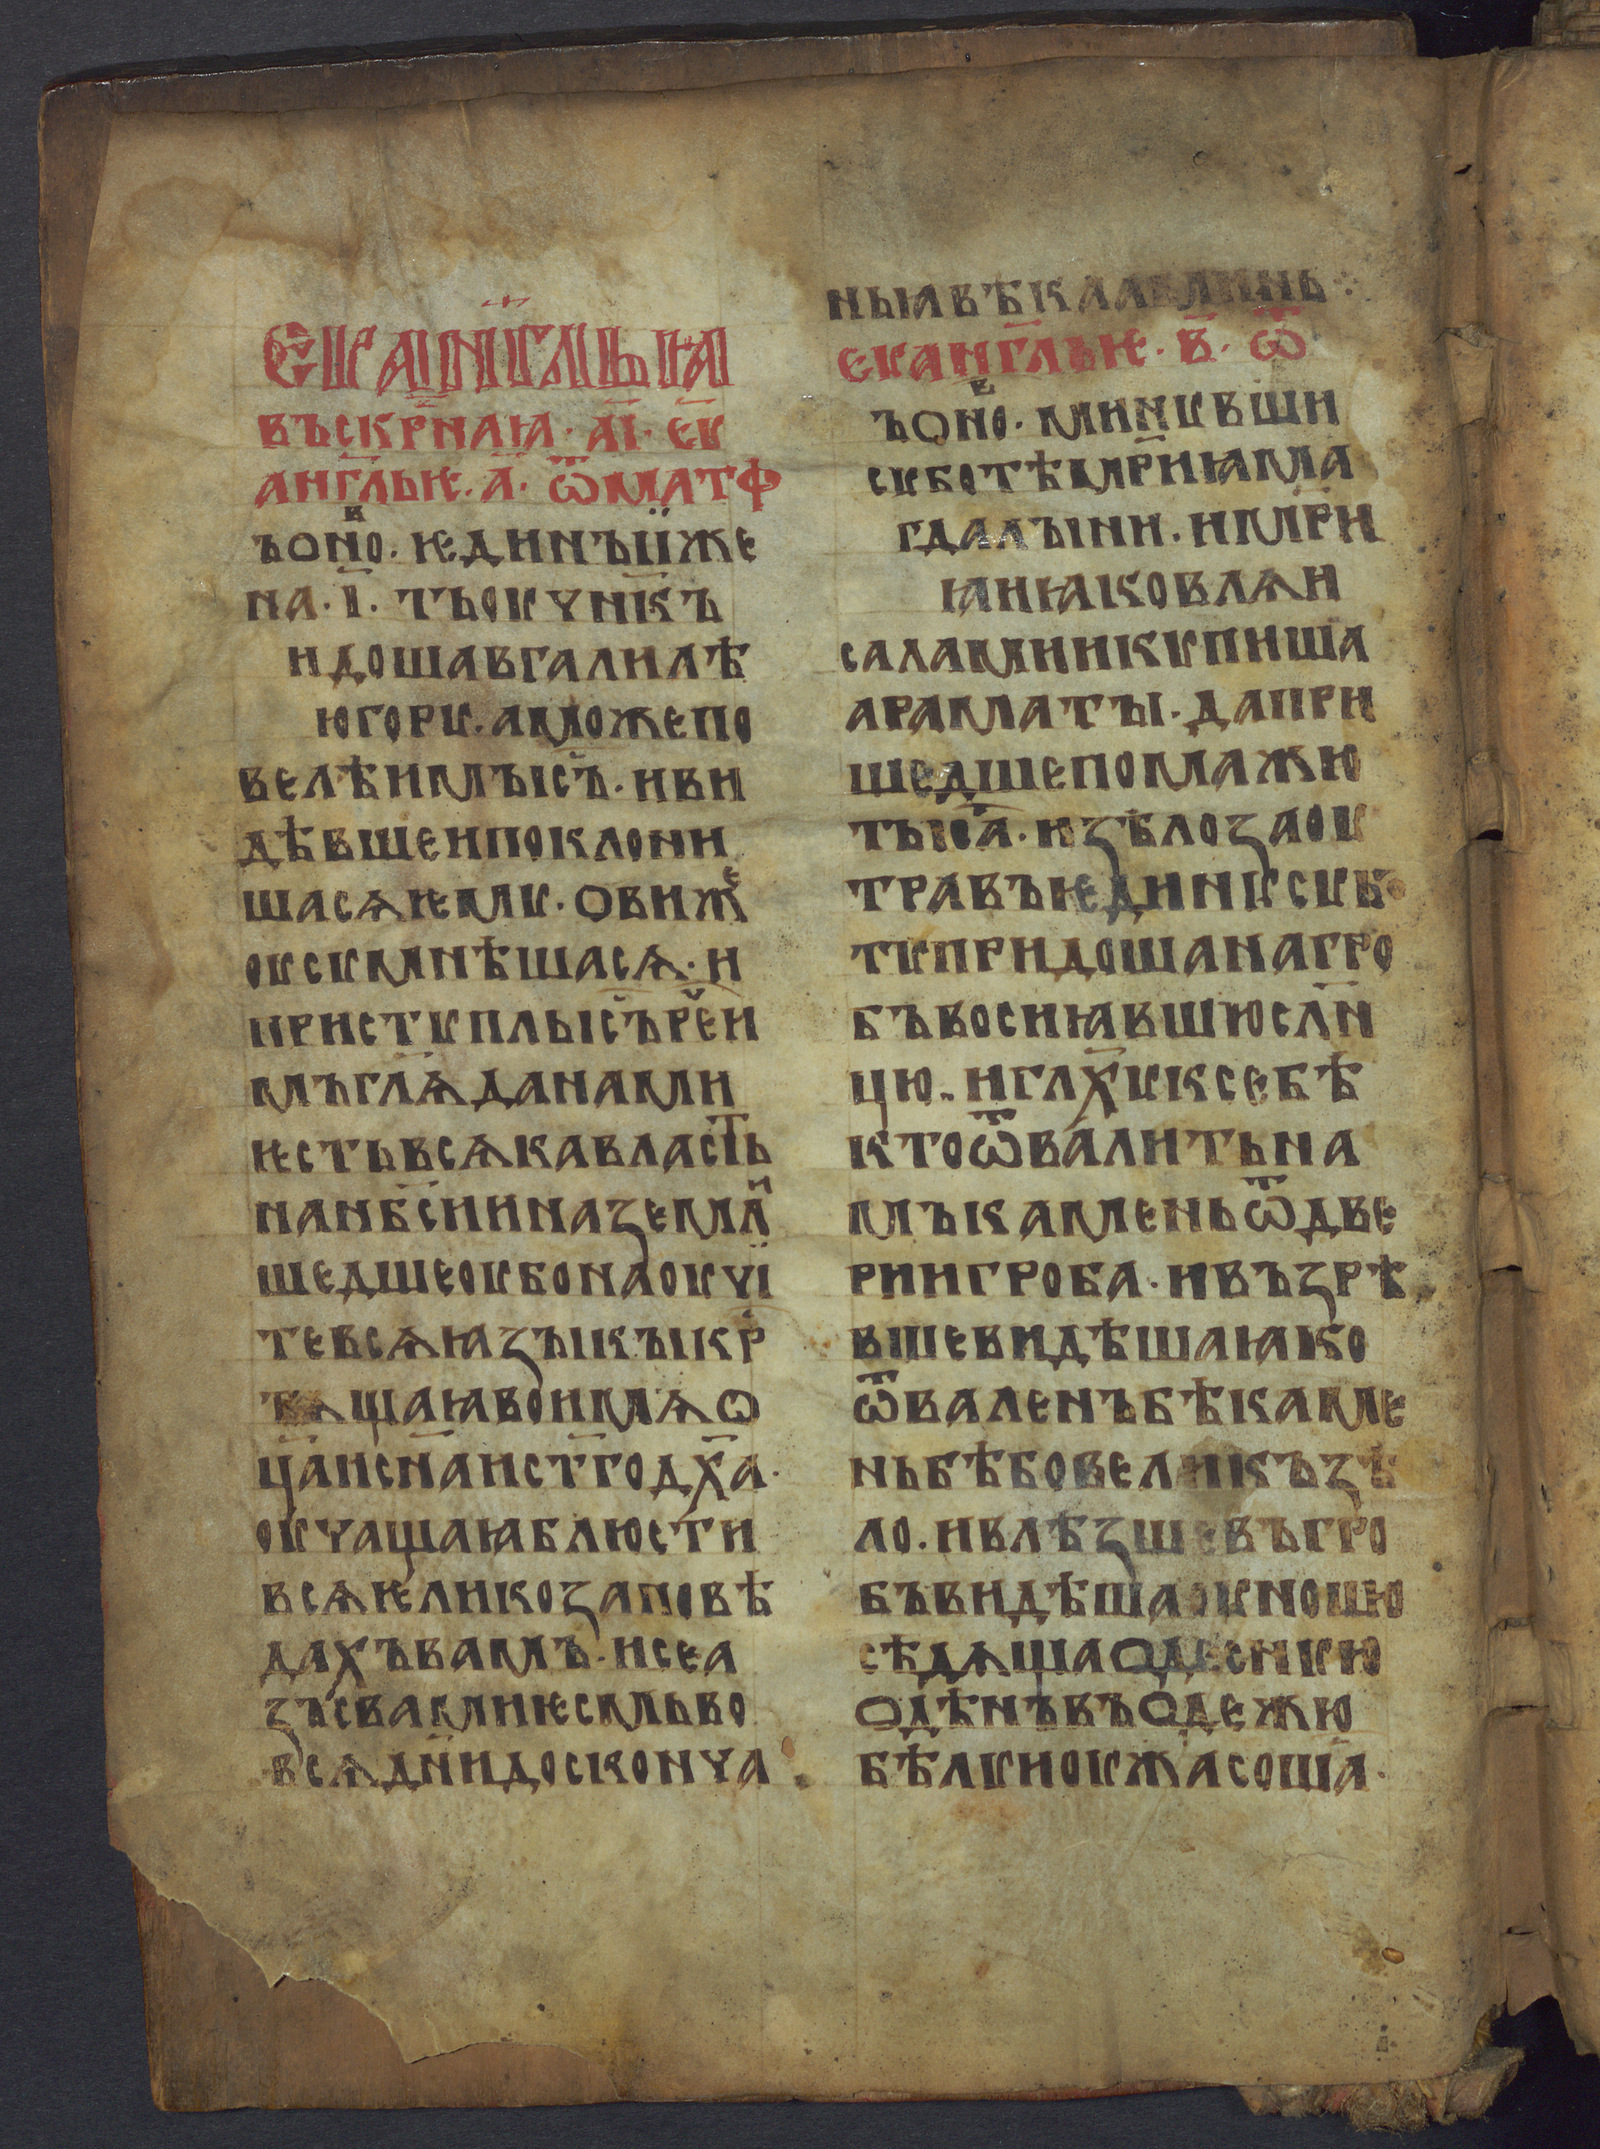 ЕꙊАНГЛЬꙖ
ВЪСКР҃НАꙖ · А҃І · ЕꙊ
АНГ҃ЛЬѤ · А҃ · Ѿ МАТФ
Ъ ОНⷡ҇О · ѤДИНЪІІ ЖЕ
НА · І҃ · ТЬ ОУЧН҃КЪ
ИДОША В ГАЛИЛѢ
Ю ГОРꙊ · АМО ЖЕ ПО
ВЕЛѢ ИМЪ ІС҃Ъ · И ВИ
ДѢВШЕ И ПОКЛОНИ
ША СѦ ѤМꙊ · ОВИ Жⷷ
ОУСꙊМНѢША СѦ · И
ПРИСТꙊПЛЬ ІС҃Ъ РЕ҇ И
МЪ ГЛ҃Ѧ ДАНА МИ
ѤСТЬ ВСѦКА ВЛАСТЬ
НА НБ҃СИ И НА ЗЕМЛⷤ
ШЕДШЕ ОУБО НАОУЧІ
ТЕ ВСѦ ꙖЗЪІКЪІ КР҇
ТѦЩА Ꙗ ВО ИМѦ О
Ц҃А И СН҃А И СТ҃ГО ДХ҃А ·
ОУЧАЩА Ꙗ БЛЮСТИ
ВСѦ ѤЛИКО ЗАПОВѢ
ДАХЪ ВАМЪ · И СЕ А
ЗЪ С ВАМИ ѤСМЬ ВО
ВСѦ ДН҃И ДО СКОНЧА
НЬꙖ ВѢКА АМИНЬ ⁘
ЕꙊАНГ҃ЛЬѤ · В҃ · Ѿ
Ъ ОНⷡ҇О · МИНꙊВШИ
СꙊБОТѢ МР҃ИꙖ МА
ГДАЛЪІНИ · И МР҃И
Ꙗ ИꙖКОВЛѦ И
САЛАМИ И КꙊПИША
АРАМАТЪІ · ДА ПРИ
ШЕДШЕ ПОМАЖЮ
ТЬ ІС҃А · И ЗѢЛО ЗАОУ
ТРА ВЪ ѤДИНꙊ СꙊБО
ТꙊ ПРИДОША НА ГРО
БЪ ВОСИꙖВШЮ СЛН҃
ЦЮ · И ГЛ҃ХꙊ К СЕБѢ
КТО ѾВАЛИТЬ НА
МЪ КАМЕНЬ Ѿ ДВЕ
РИИ ГРОБА · И ВЪЗРѢ
ВШЕ ВИДѢША ꙖКО
ѾВАЛЕНЪ БѢ КАМЕ
НЬ БѢ БО ВЕЛИКЪ ЗѢ
ЛО · И ВЛѢЗШЕ ВЪ ГРО
БЪ ВИДѢША ОУНОШЮ
СѢДѦЩА ОДЕСНꙊЮ
ОДѢНЪ ВЪ ОДЕЖЮ
БѢЛꙊ И ОУЖАСОША ·